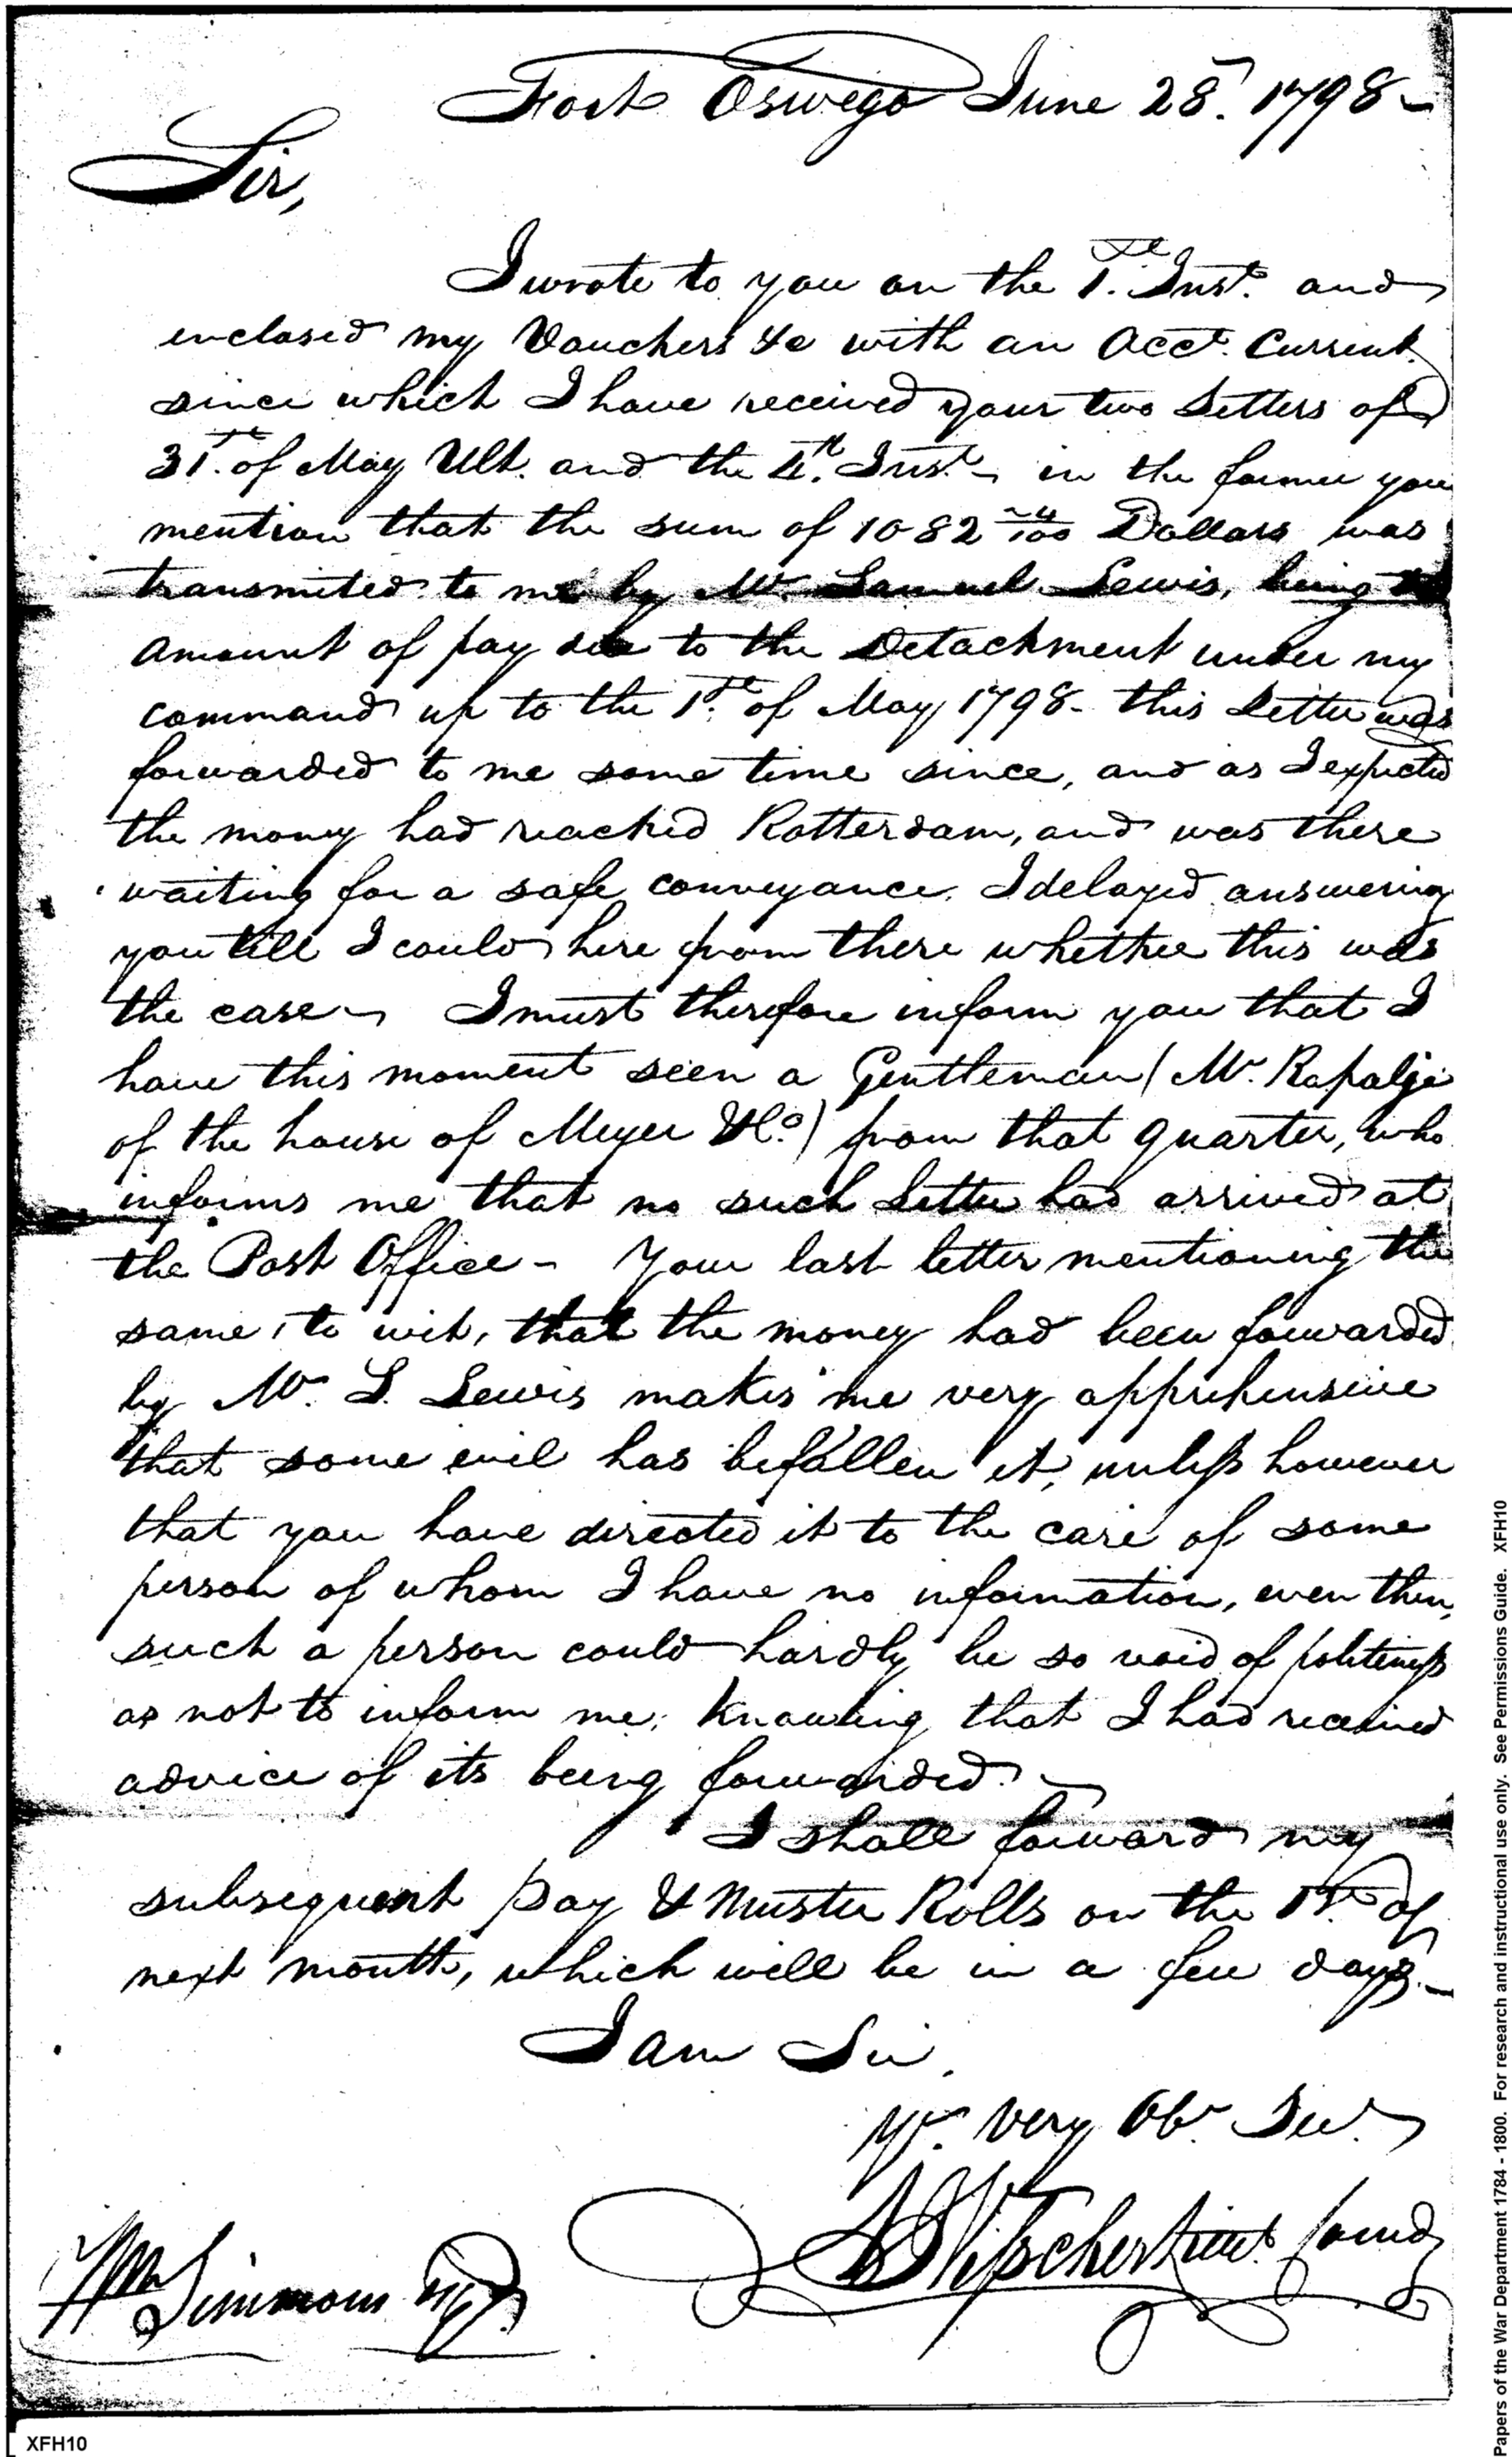 Fort Oswego June 28. 1798-
Sir,
I wrote to you on the 1st. Inst. and
enclosed my Vouchers &c with an Acct. Current.
since which I have received your two Letters of
31st. of May Ult. and the 4th. Inst- in the former you
mention that the sum of 1082 /100 Dollars was
transmited to me by Mr. Samuel Lewis, being
amount of pay due to the Detachment under my
command up to the 1st. of May 1798- this Letter was
forwarded to me some time since, and as I expected
the money had reached Rotterdam, and was there
waiting for a safe conveyance. I delayed answering
you till I could here from there whether this was
the case- I must therefore inform you that I
have this moment seen a Gentleman (Mr. Rapalje
of the house of Meyer & Co.) from that quarter, who
informs me that no such Letter had arrived at
the Post Office- Your last letter mentioning the
same, to wit, that the money had been forwarded
by Mr. S. Lewis makes me very apprehensive
that some evil has befallen it, unless however
that you have directed it to the care of some
person of whom I have no information, even then,
such a person could hardly be so void of politeness
as not to inform me, knowing that I had received
advice of its being forwarded.-
I shall forward my
subsequent Pay & Muster Rolls on the 1st. of
next month, which will be in a few days.-
I am Sir,
Yr. Very Ob. Ser.
Lieut. Comd
Wm Simmons Esqr.
XFH10
Papers of the War Department 1784 - 1800. For research and instructional use only. See Permissions Guide. XFH10